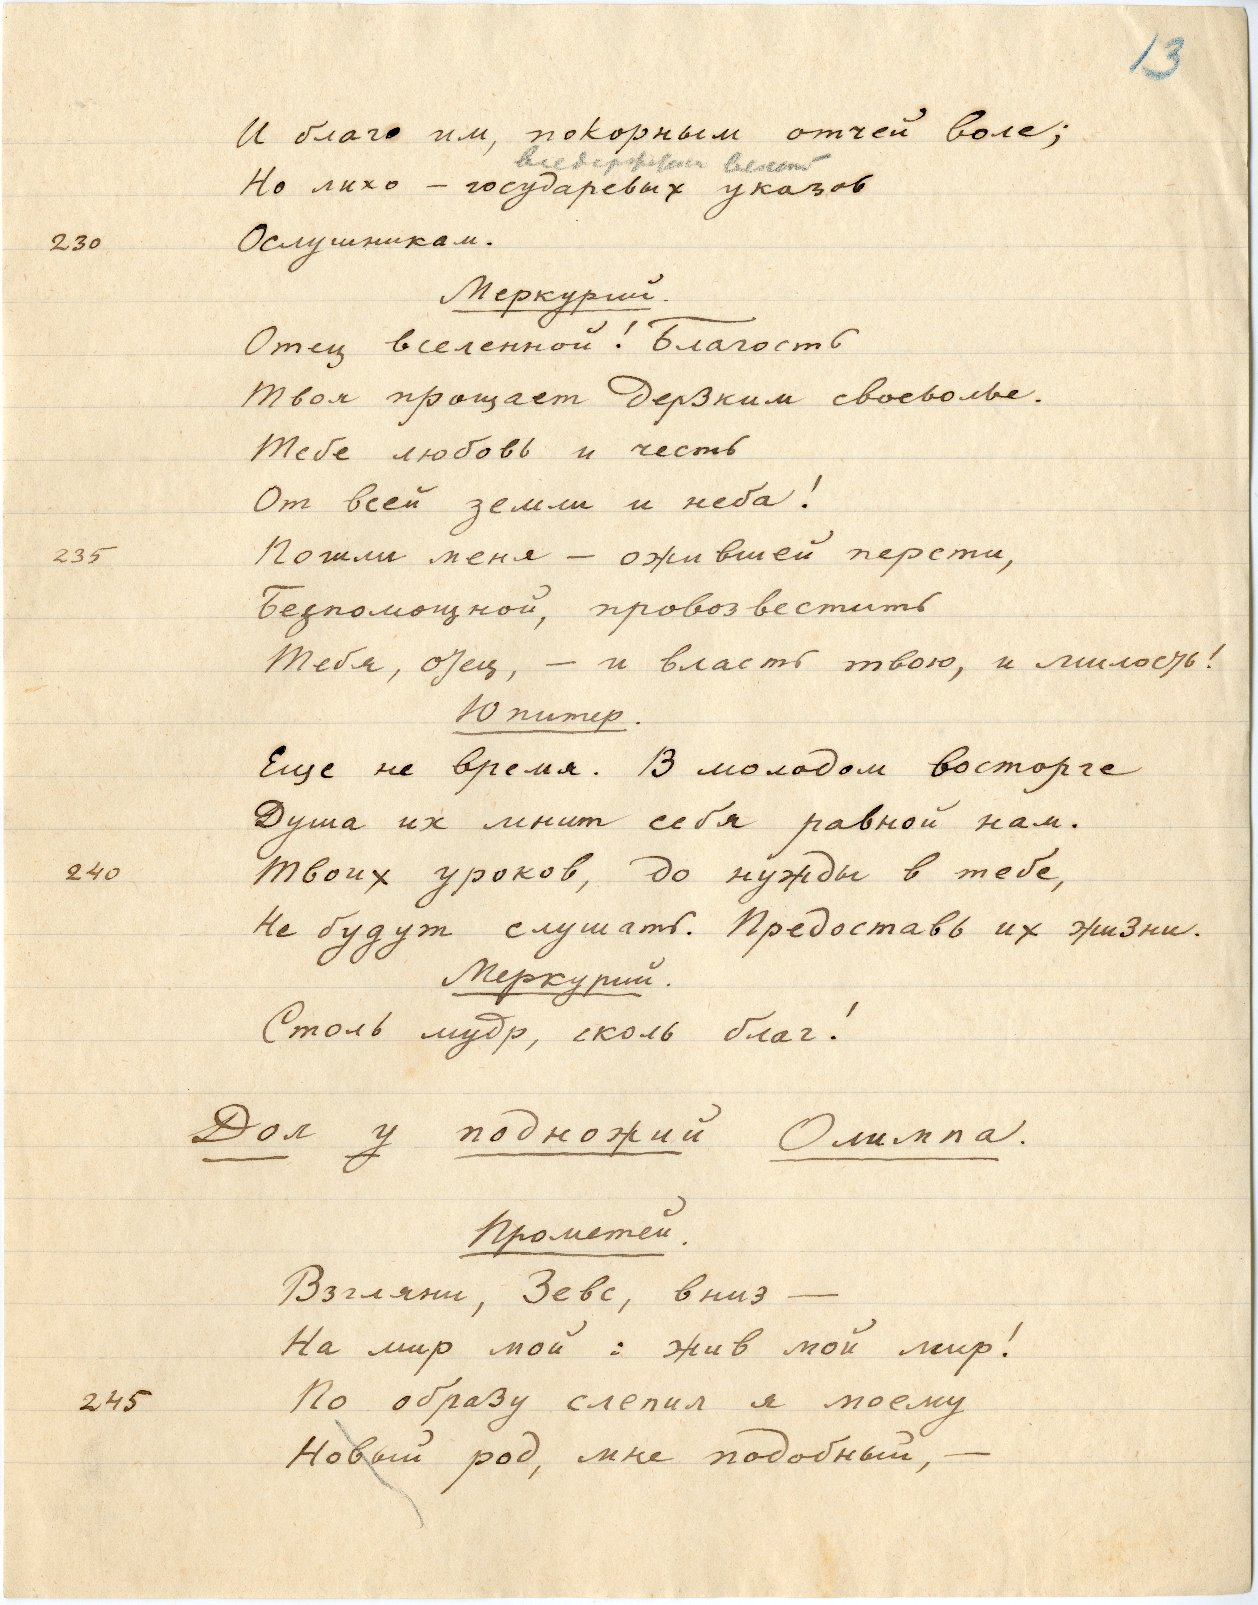 13
И благо им, покорным отчей воле;
Но лихо – государевых указов
230 Ослушникам.
Меркурий.
Отец вселенной! Благость
Твоя прощает дерзким своеволье.
Тебе любовь и честь
От всей земли и неба!
235 Пошли меня – ожившей персти,
Безпомощной, провозвестить
Тебя, отец, – и власть твою, и милость!
Юпитер.
Еще не время. В молодом восторге
Душа их мнит себя равной нам.
240 Твоих уроков, до нужды в тебе,
Не будут слушать. Предоставь их жизни.
Меркурий.
Столь мудр, сколь благ!
Дол у подножий Олимпа.
Прометей.
Взгляни, Зевс, вниз —
На мир мой: жив мой мир!
245 По образу слепил я моему
Новый род, мне подобный, —